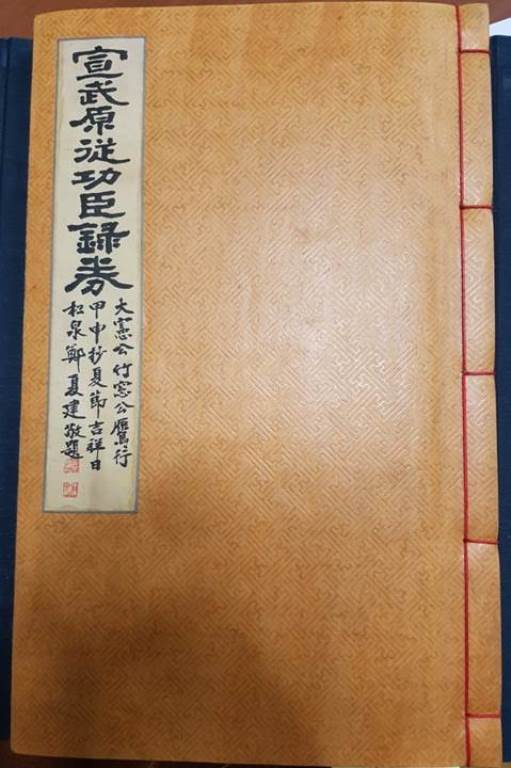 宣武原從功臣錄券
大憲公竹窓公雁行
甲申抄夏節吉祥日
松泉鄭夏建敬題